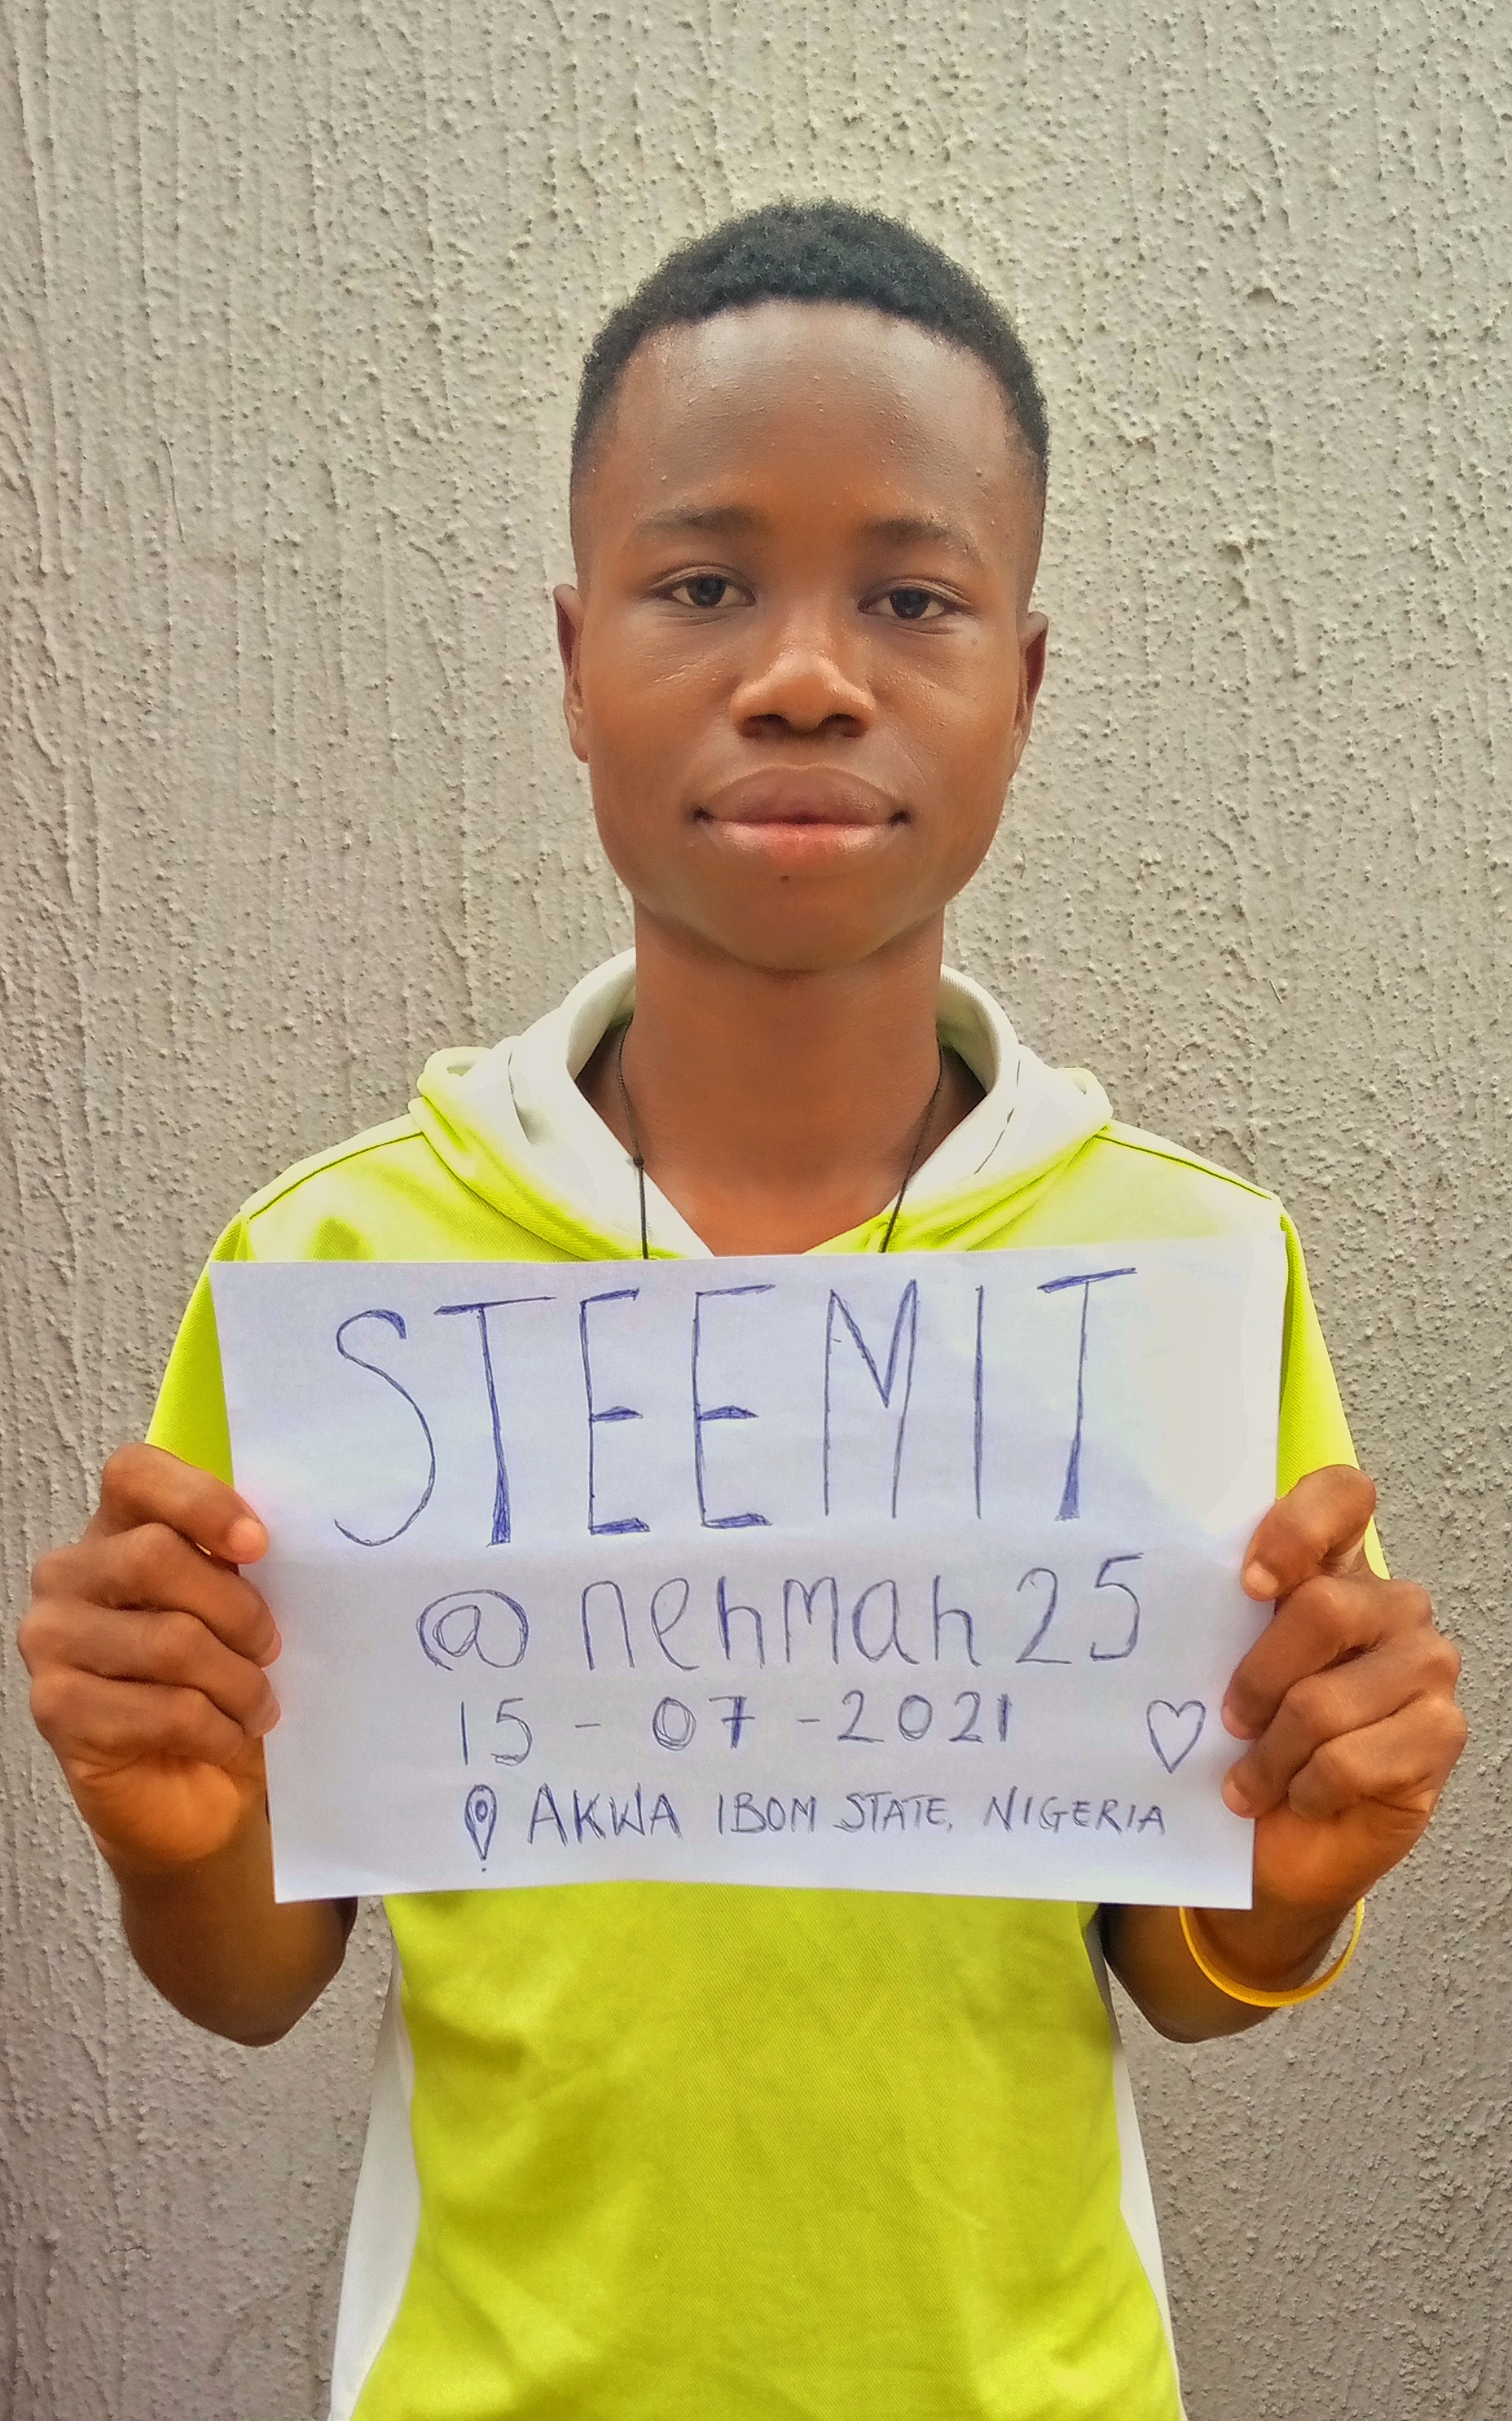 STEEMIT
@nehmah25
15-07-2021
AKWA IBOM STATE, NIGERIA